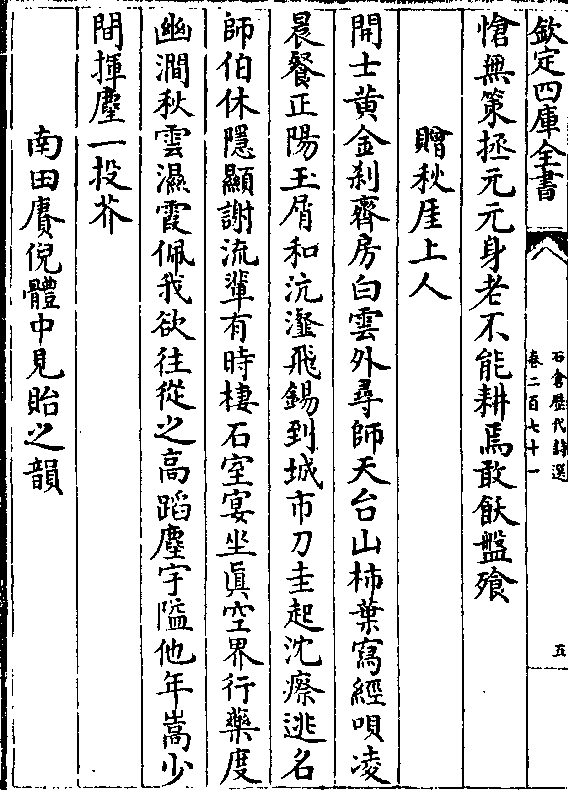 欽定四庫全書
石倉歷代詩選
卷二百七十一
五
愴無策拯元元身老不能耕焉敢飫盤飱
贈秋厓上人
開士黃金刹齋房白雲外尋師天台山柿葉寫經唄凌
晨餐正陽玉屑和沆瀣飛錫到城市刀圭起沈瘵逃名
師伯休隱顯謝流輩有時棲石室宴坐眞空界行藥度
幽澗秋雲濕霞佩我欲往從之高蹈塵宇隘他年嵩少
間揮麈一投芥
南田賡倪體中見貽之韻